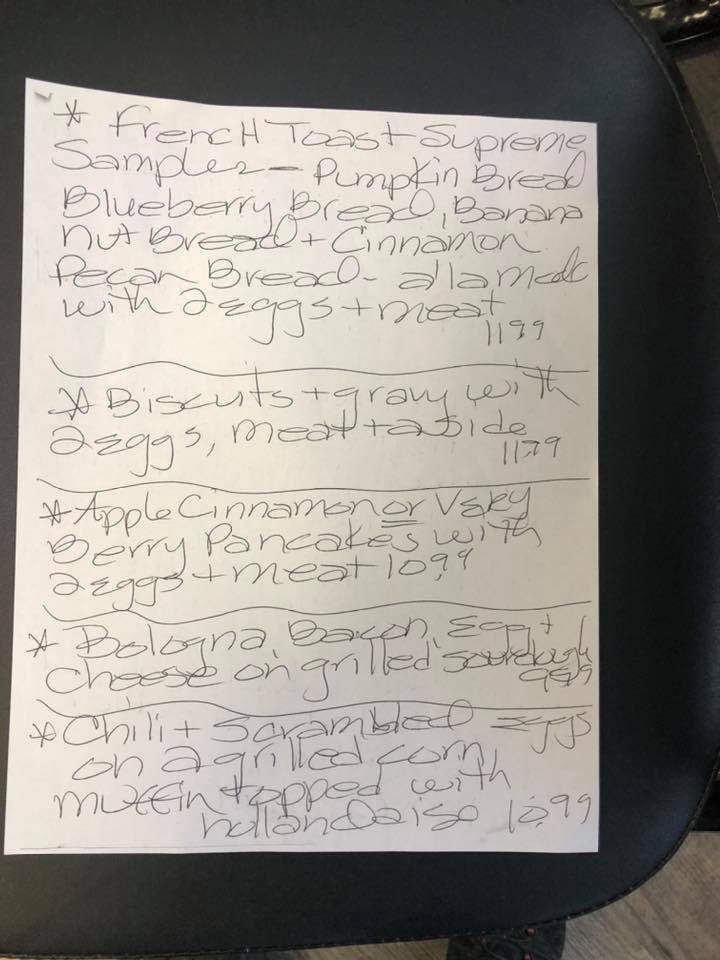 * French Toast Supreme
Sampler - Pumpkin Bread
Blueberry Bread, Banana
nut Bread + Cinnamon
Pecan Bread - alla mode
with 2 eggs + meat
11.99
* Biscuts + gravy with
2 eggs, meat + a side
11.79
* Apple Cinnamon or Vary
Berry Pancakes with
2 eggs + meat 10.99
* Bologna, Bacon, Egg +
Cheese on grilled sourdough
9.59
* Chili + Scrambled Eggs
on a grilled corn
muffin topped with
hollandaise 10.99